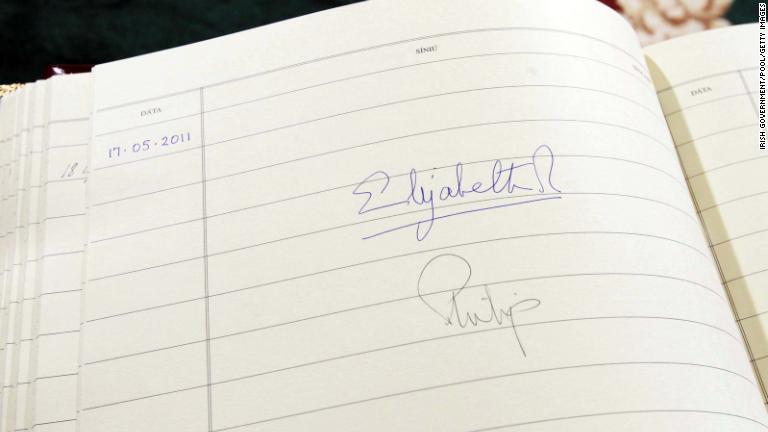 SÍNIÚ
DÁTA
DÁTA
17.05.2011
Elizabeth R
Philip
IRISH GOVERNMENT/POOL/GETTY IMAGES